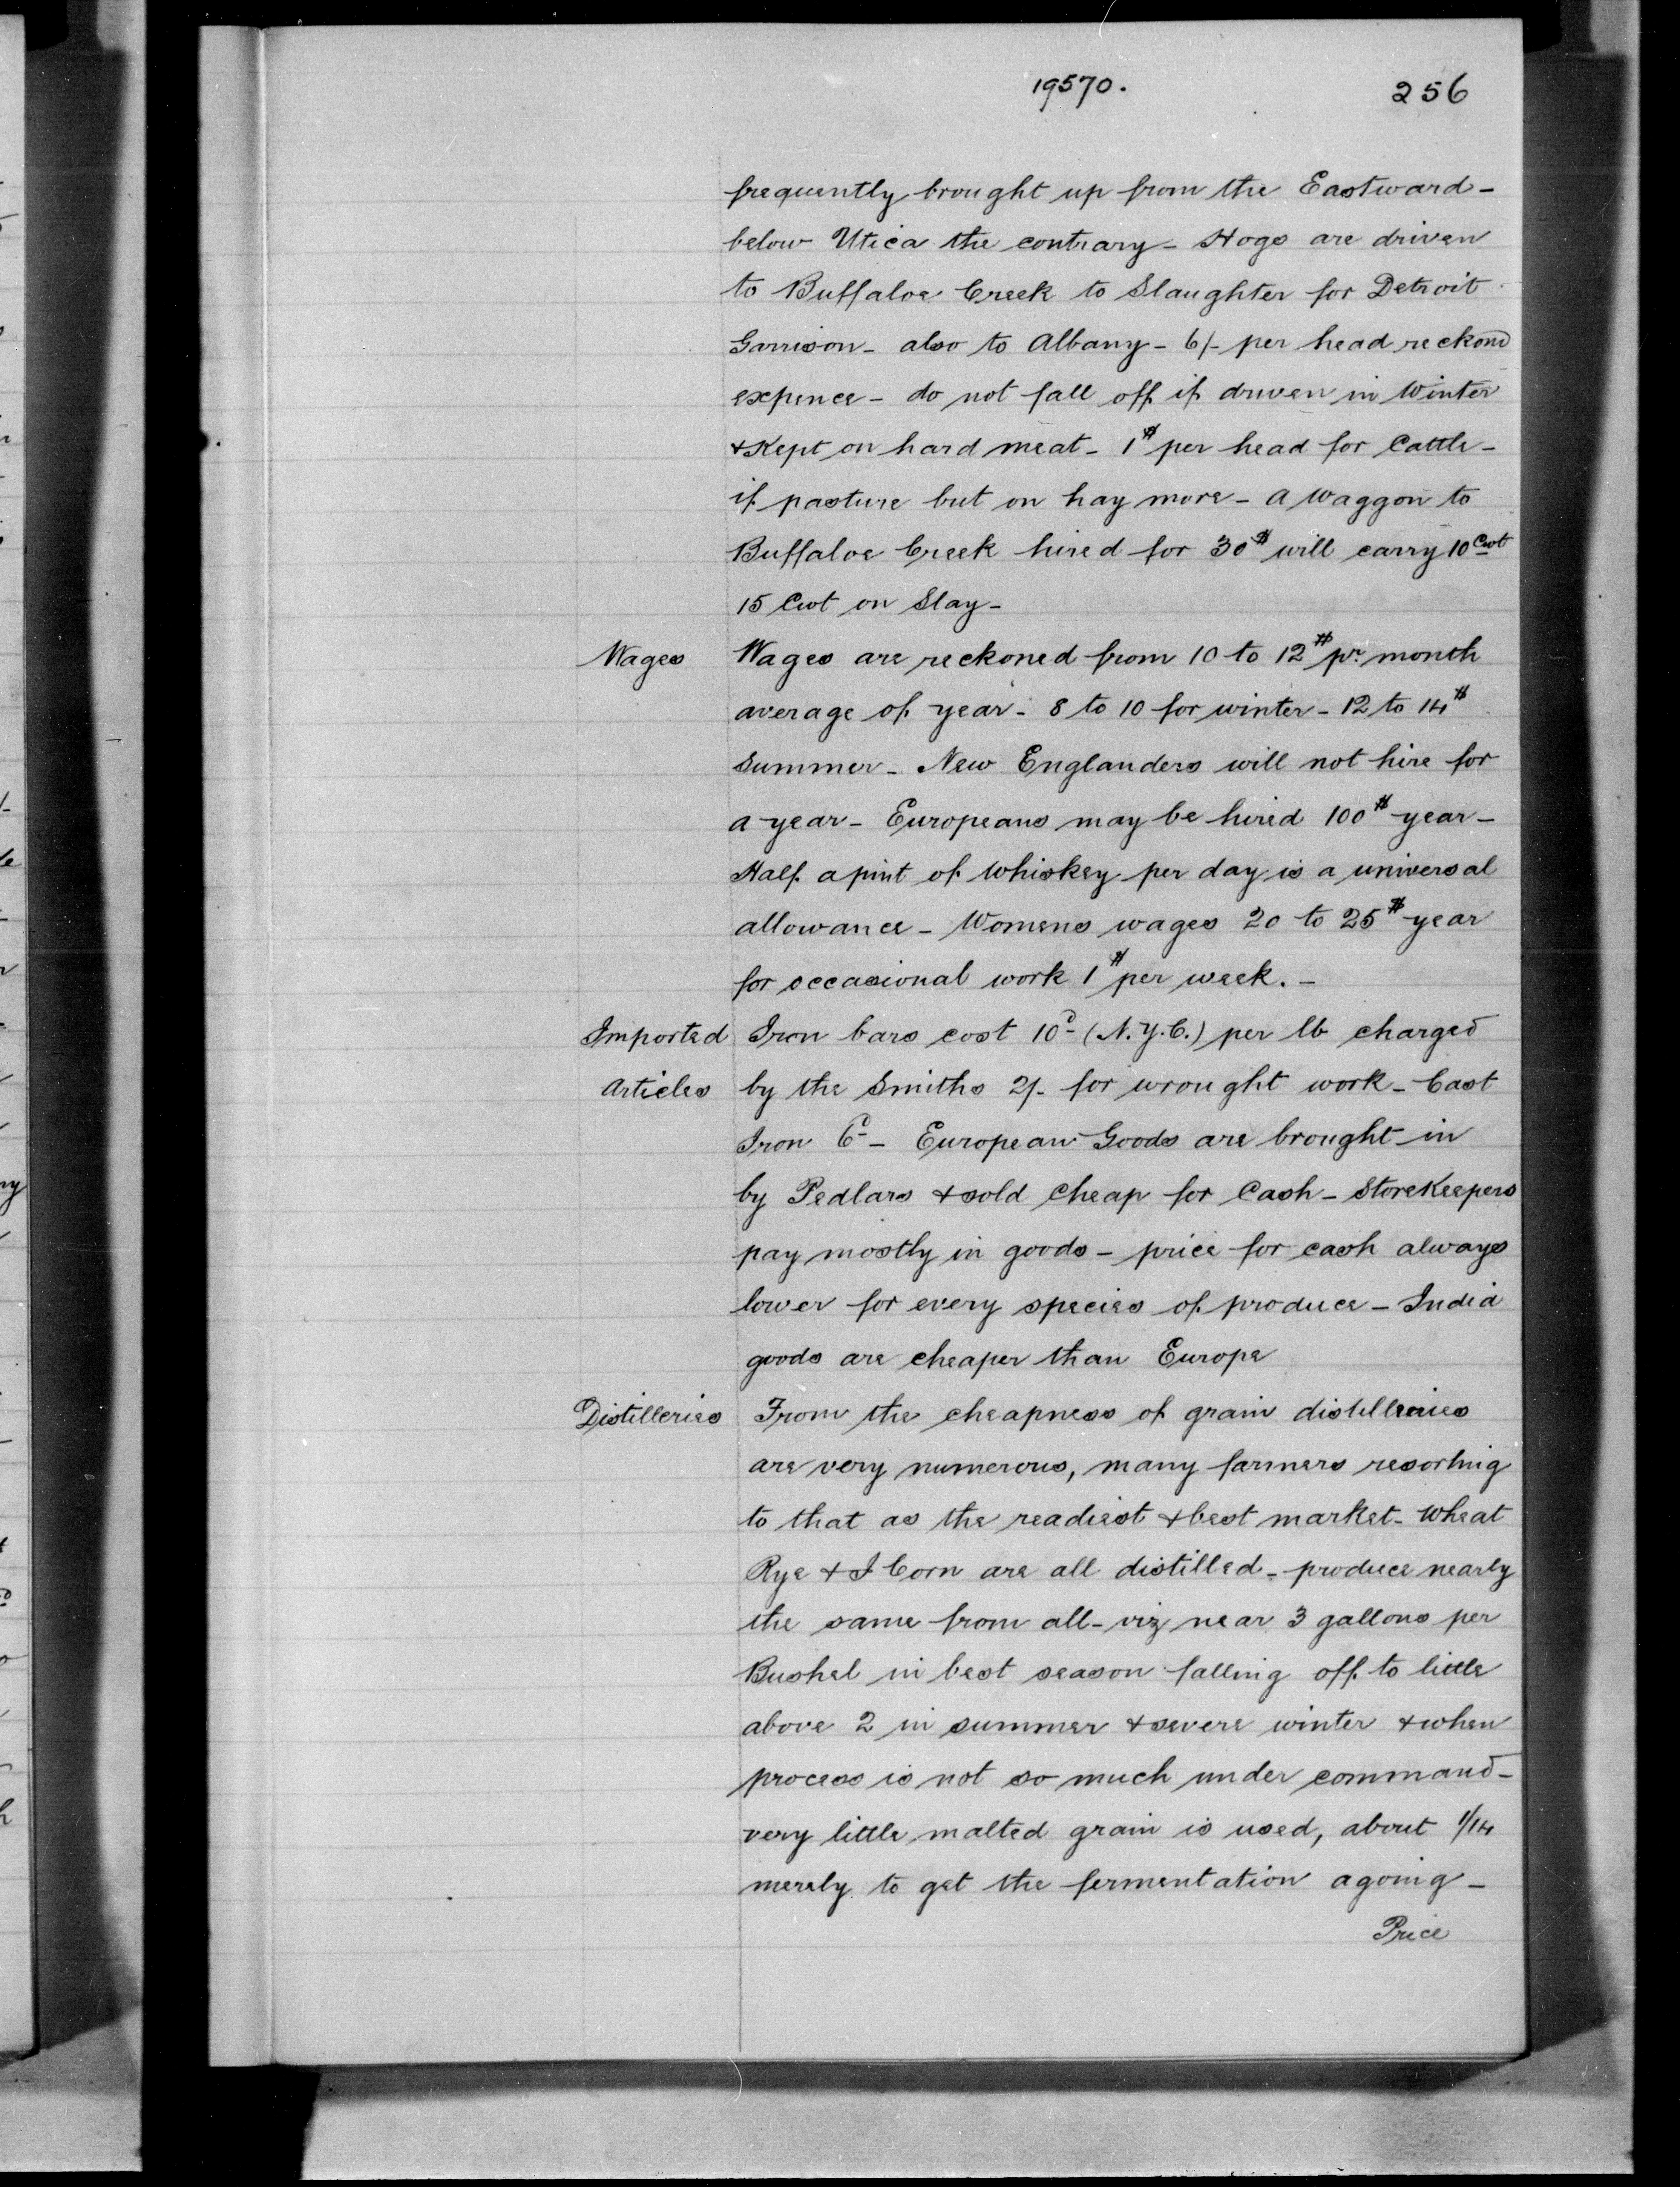 19570.
256
frequently brought up from the Eastward -
below Utica the contrary - Hogs are driven
to Buffaloe Creek to Slaughter for Detroit
Garrison - also to Albany - 6/- per head reckond
expence - do not fall off if driven in Winter
& Kept on hard meat - 1$ per head for Cattle -
if pasture but on hay more - a Waggon to
Buffaloe Creek hired for 30$ will carry 10 Cwt
15 Cwt on Slay -
Wages Wages are reckoned from 10 to 12$ pr month
average of year - 8 to 10 for winter - 12 to 14$
Summer - New Englanders will not hire for
a year - Europeans may be hired 100$ year -
Half a pint of Whiskey per day is a universal
allowance - Womens wages 20 to 25$ year
for occasional work 1$ per week. -
Imported Iron bars cost 10d (N.Y.C.) per lb charged
Articles by the Smiths 2/- for wrought work - Cast
Iron 6d - European Goods are brought in
by Pedlars & sold Cheap for Cash - Storekeepers
pay mostly in goods - price for cash always
lower for every species of produce - India
goods are cheaper than Europe
Distilleries From the cheapness of grain distilleries
are very numerous, many farmers resorting
to that as the readiest & best market - Wheat
Rye & I Corn are all distilled - produce nearly
the same from all - viz near 3 gallons per
Bushel in best season falling off to little
above 2 in summer & severe winter & when
process is not so much under command -
very little malted grain is used, about 1/14
merely to get the fermentation agoing -
Price